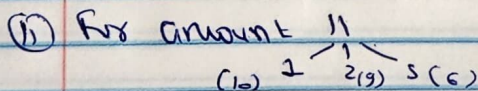 ⑪ For amount 11
(10) 1 2(9) 5(6)